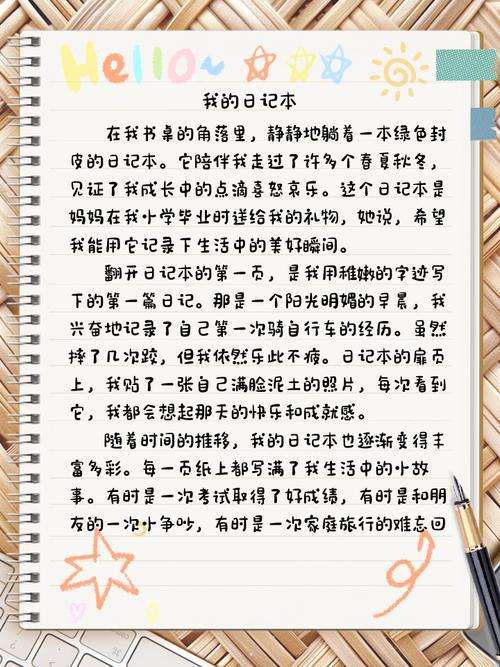 Hello~
我的日记本
在我书桌的角落里，静静地躺着一本绿色封
皮的日记本。它陪伴我走过了许多个春夏秋冬，
见证了我成长中的点滴喜怒哀乐。这个日记本是
妈妈在我小学毕业时送给我的礼物，她说，希望
我能用它记录下生活中的美好瞬间。
翻开日记本的第一页，是我用稚嫩的字迹写
下的第一篇日记。那是一个阳光明媚的早晨，我
兴奋地记录了自己第一次骑自行车的经历。虽然
摔了几次跤，但我依然乐此不疲。日记本的扉页
上，我贴了一张自己满脸泥土的照片，每次看到
它，我都会想起那天的快乐和成就感。
随着时间的推移，我的日记本也逐渐变得丰
富多彩。每一页纸上都写满了我生活中的小故
事。有时是一次考试取得了好成绩，有时是和朋
友的一次小争吵，有时是一次家庭旅行的难忘回